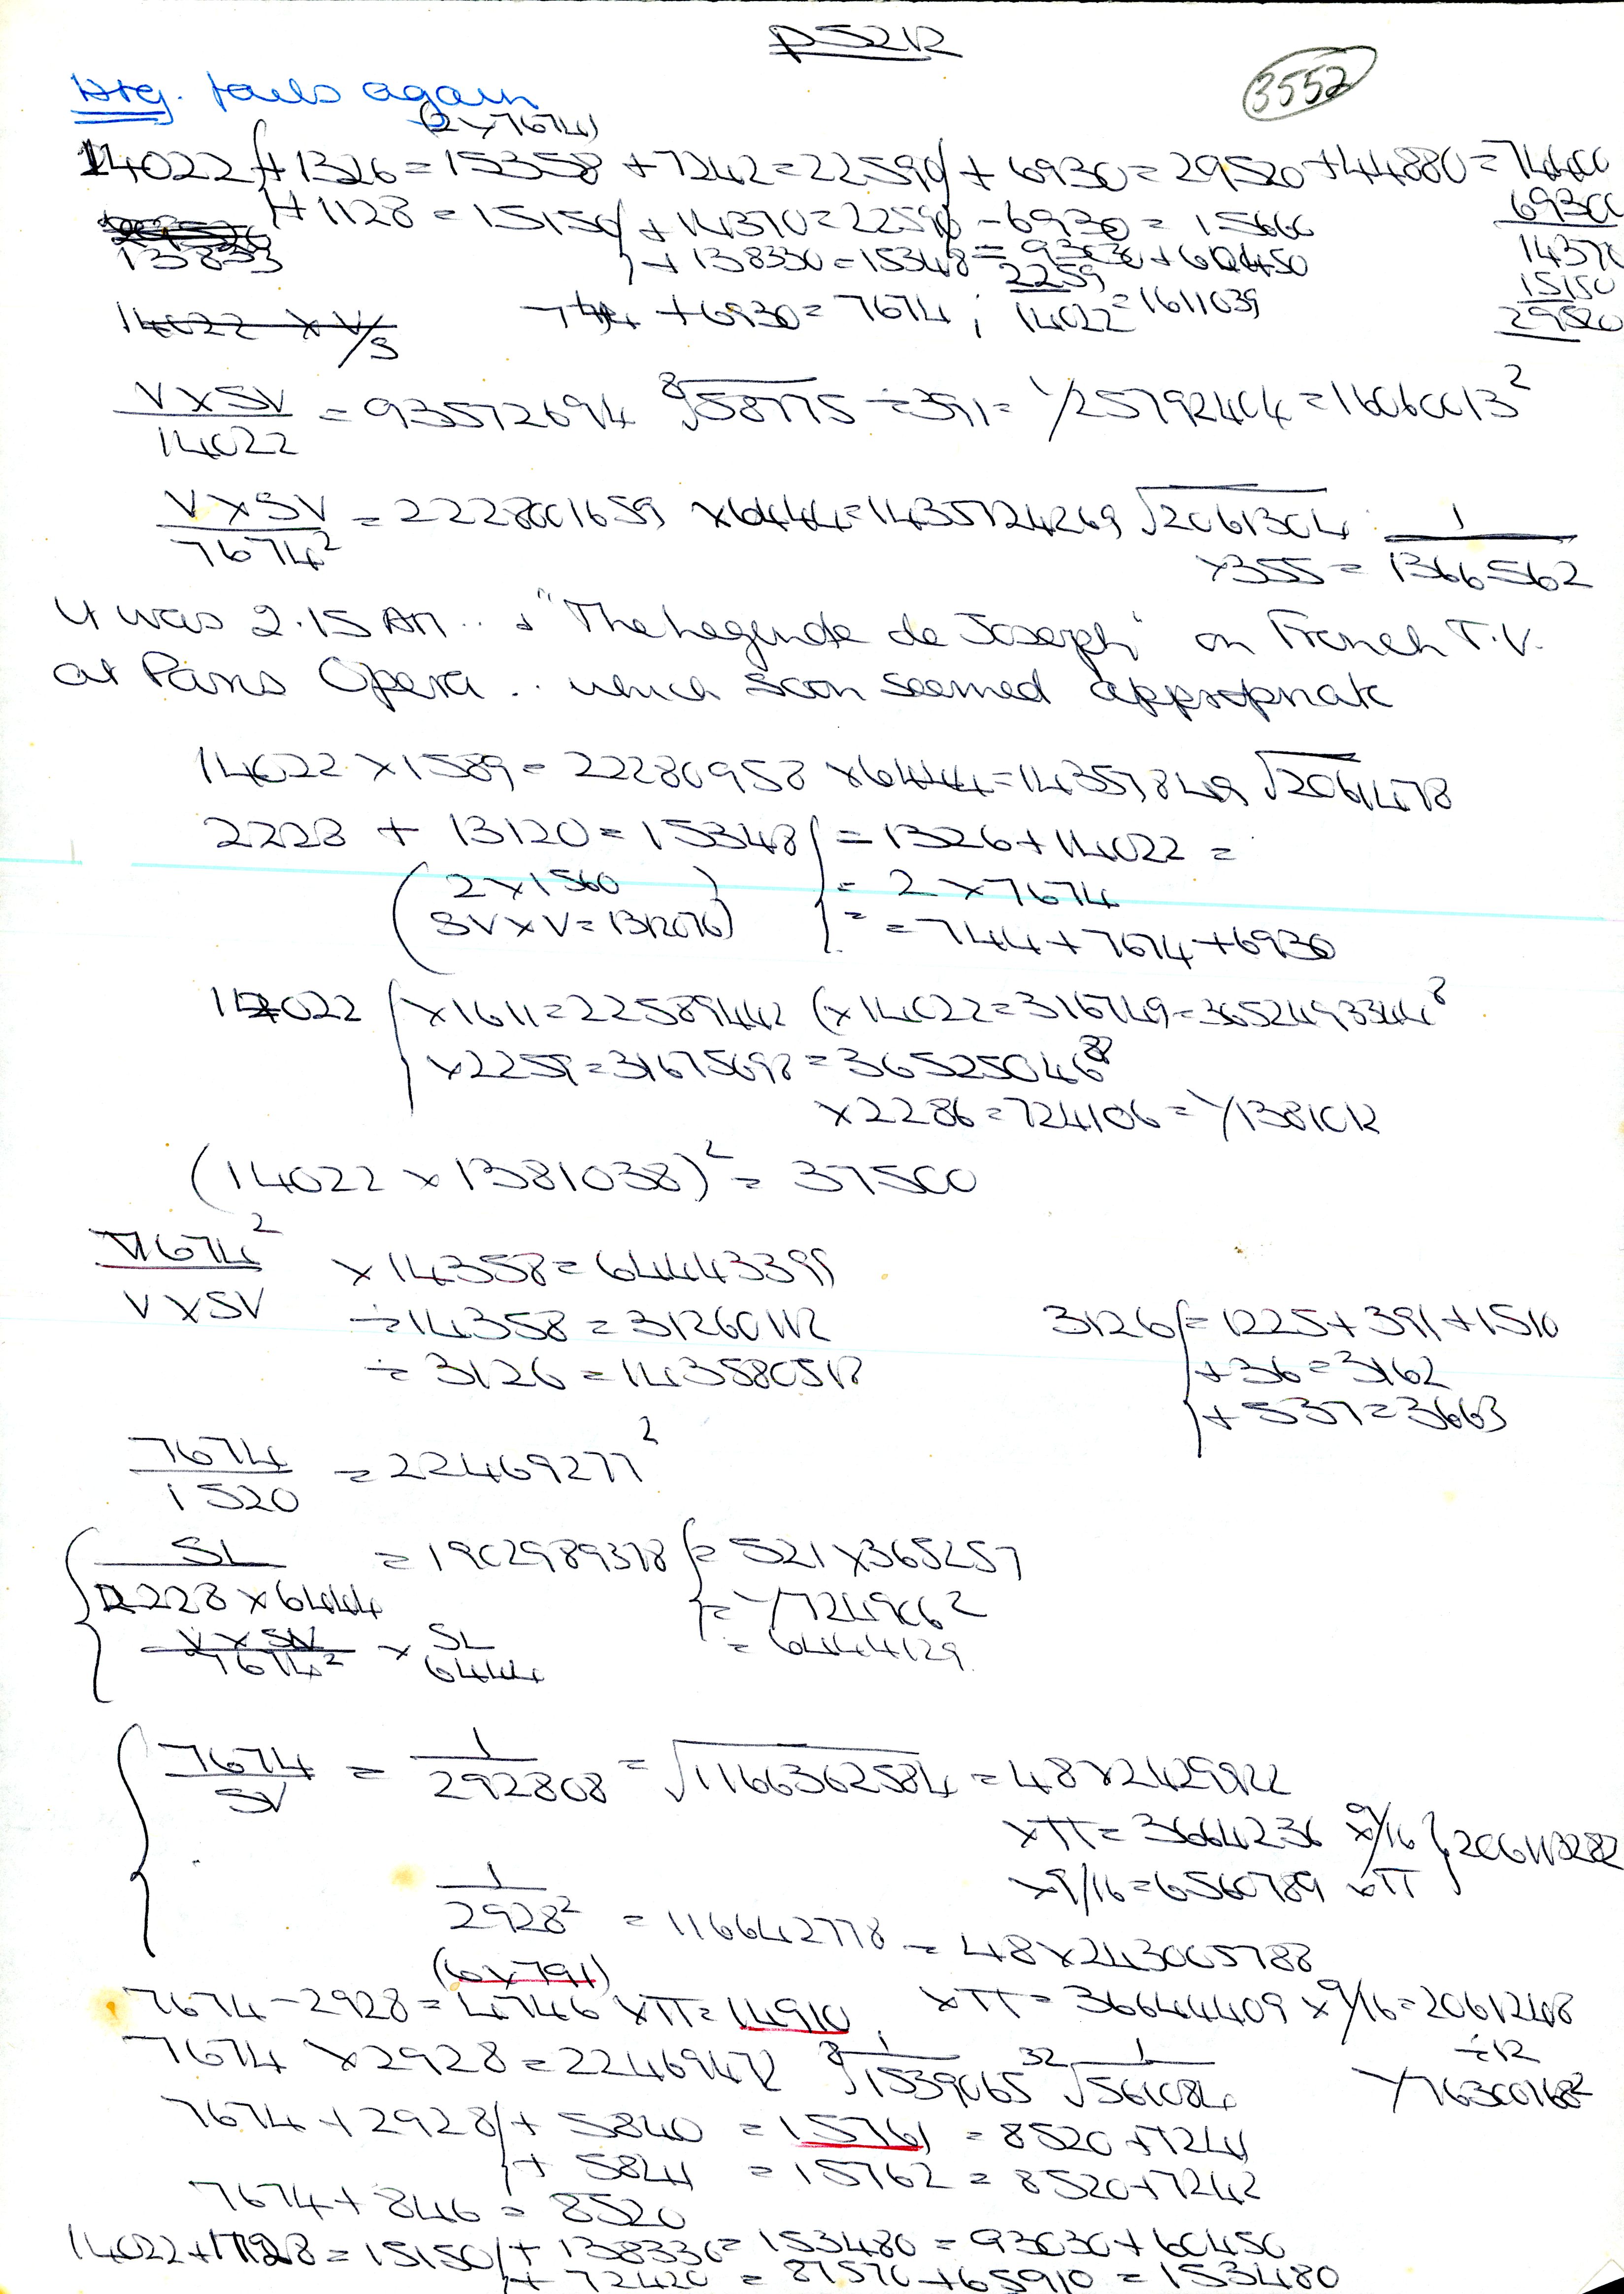 p5212
3552
Htg. fails again
(2×7674)
14022 { +1326 = 15358 +7242 = 22590 } + 6930 = 29520 +44880 = 74400
+1128 = 15150 } + 14370 = 22590 - 6930 = 15660
69300
14370
15150
29520
13833 } + 138330 = 15348 = 93030 + 60450
744 + 6930 = 7674 ; 2259/14022 = 1611039
14022 × V/S
V×SV/14022 = 93572694 ⁸√58775 ÷391 = 1/25792404 = 16060013²
V×SV/7674² = 2228001659 ×6444 = 1435724269 √2061304 1/1366562
×355 =
It was 2.15 AM .. & "The Legende de Joseph" on French T.V.
at Paris Opera .. which soon seemed appropriate
14022 ×1589 = 22280958 ×6444 = 14357849 √2061478
2228 + 13120 = 15348 { = 1326 + 14022 =
(2×1560) = 2 × 7674
(SV×V = 1312076) = = 744 + 7674 + 6930
14022 { ×1611 = 22589442 (×14022 = 316749 = 3652493344⁸
×2259 = 31675698 = 365250468⁸
×2286 = 724106 = 1/1381012
(14022 × 1381038)² = 37500
7674²/V×SV ×14358 = 64443399
÷14358 = 31260112
÷ 3126 = 143580512
3126 { = 1225 + 391 + 1510
+ 36 = 3162
+ 537 = 3663
7674/1520 = 22469277²
SL/2228×6444 = 1902989378 { = 521 × 365257
= 1/7249062
V×SV/7674² × SL/6444 = 6444129
7674/SV = 1/292808 = √1166362584 = 48×2429922
×π = 3664236 ×9/16 } 206113282
×9/16 = 6560789 ×π
1/2928² = 116642778 = 48×243005788
(6×791)
7674 - 2928 = 4746 ×π = 14910 ×π = 36644409 ×9/16 = 20612408
7674 × 2928 = 22469472 ⁸√1/1539065 ³²√1/561084 ÷12
1/76300768²
7674 + 2928 { + 5840 = 15761 = 8520 + 7241
+ 5841 = 15762 = 8520 + 7242
7674 + 846 = 8520
14022 + 1128 = 15150 { + 138330 = 153480 = 93030 + 60450
+ 72420 = 87570 + 65910 = 153480